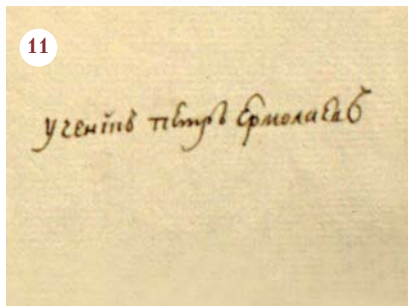 11
ученикъ петръ Ермолаевъ